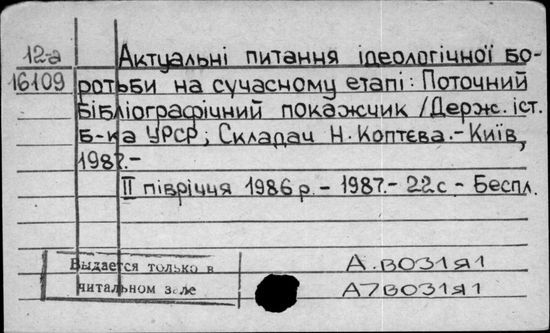 12-а
16109
Актуальні питання ідеологічної бо-
ротьби на сучасному етапі: Поточний
бібліографічний покажчик /Держ. іст.
б-ка УРСР; Складач Н. Коптєва.- Київ,
1987.-
II півріччя 1986 р. - 1987.- 22 с. - Беспл.
Выдается только в
читальном зале
А.ВО31я1
А7ВО31я1